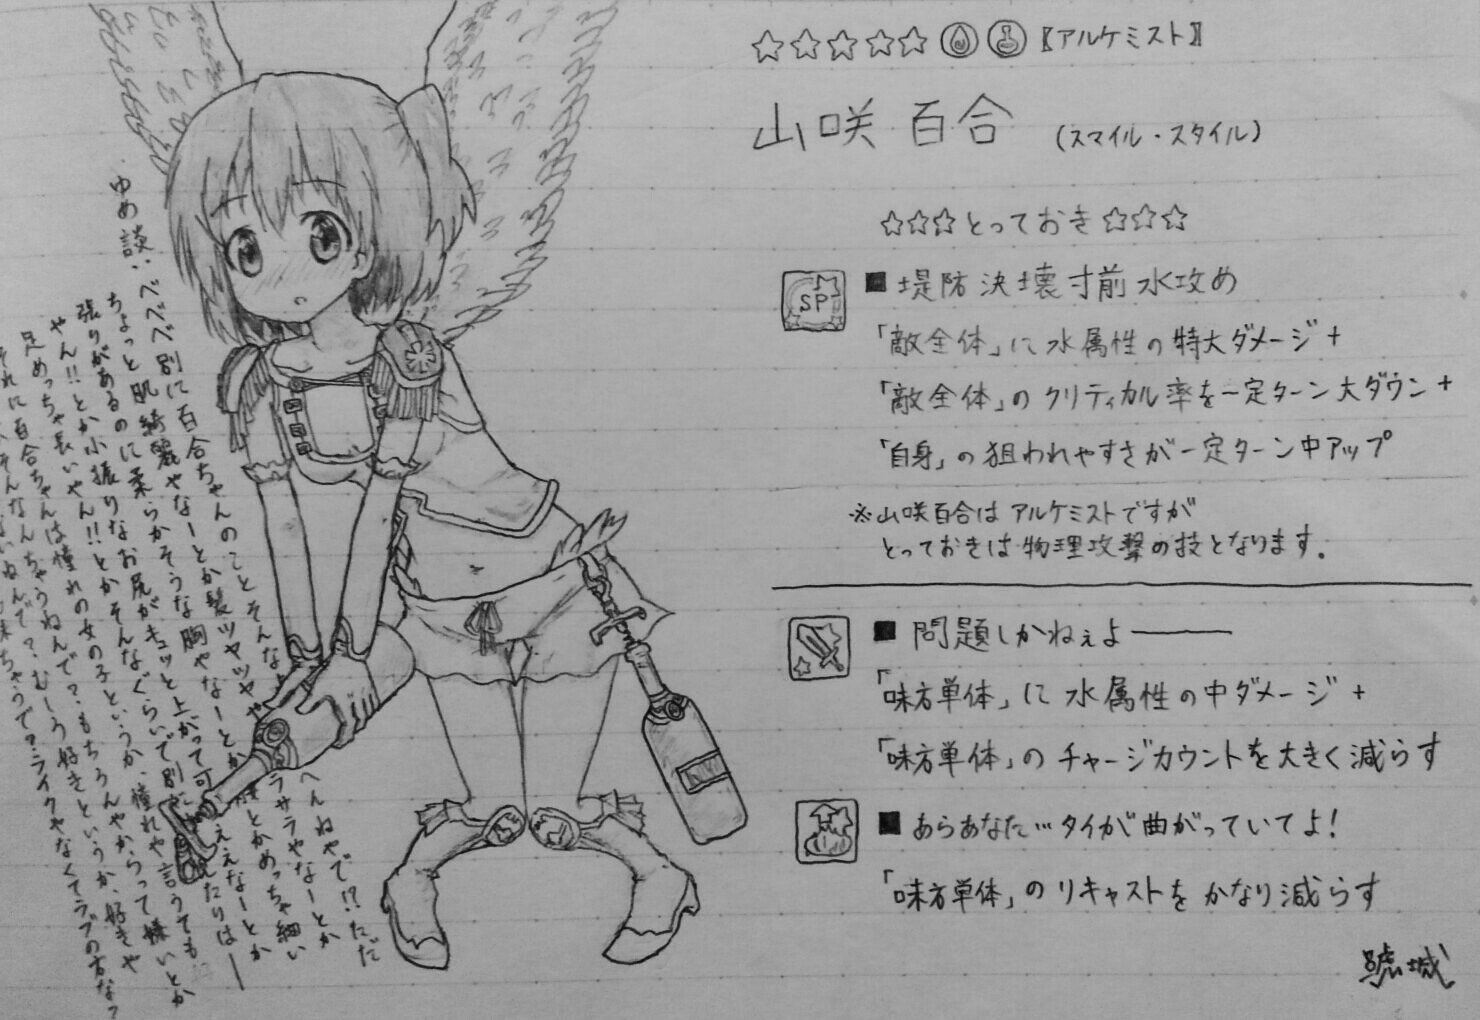 ☆☆☆☆☆ 〖アルケミスト〗
山咲 百合 (スマイル・スタイル)
☆☆☆とっておき☆☆☆
SP
■堤防決壊寸前水攻め
「敵全体」に水属性の特大ダメージ+
「敵全体」のクリティカル率を一定ターン大ダウン+
「自身」の狙われやすさが一定ターン中アップ
※山咲百合はアルケミストですが
とっておきは物理攻撃の技となります.
■問題しかねぇよ───
「味方単体」に水属性の中ダメージ+
「味方単体」のチャージカウントを大きく減らす
■あらあなた…タイが曲がっていてよ!
「味方単体」のリキャストをかなり減らす
號城
ゆめ談:
べべべ別に百合ちゃんのことそんな
へんねやで!?ただ
ちょっと肌綺麗やなーとか髪ツヤツヤや
サラサラやなーとか
張りがあるのに柔らかそうな胸やなーとか
とかめっちゃ細い
やん!!とか小振りなお尻がキュッと上がって可
ええなーとか
足めっちゃ長いやん!!とかそんなぐらいで別
したりはー
それに百合ちゃんは憧れの女の子というか、憧れや言うても
そんなんちゃうねんで?もちろんやからって嫌いとか
ないねんで?むしろ好きというか、好きや
味ちゃうで?ライクやなくてラブの方な?